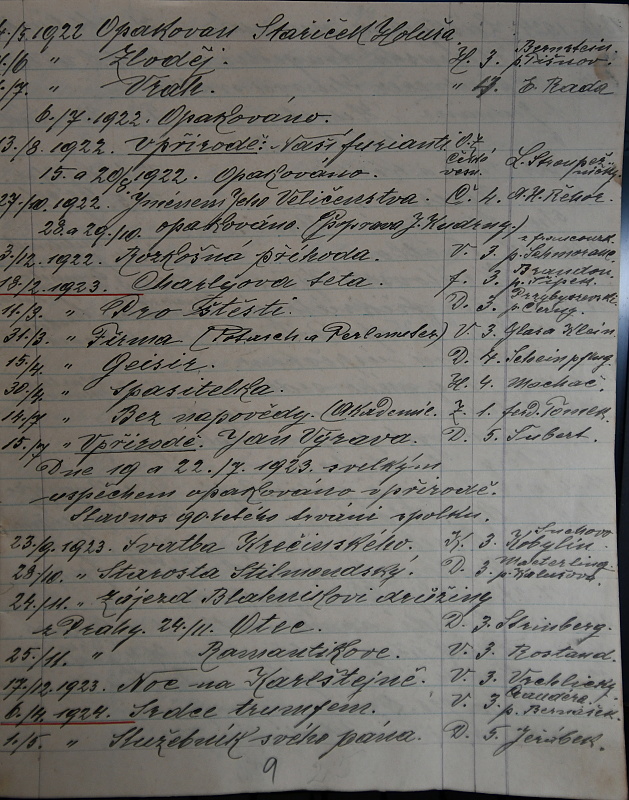 /5 1922 Opakován Stařiček Holuša
/6 " Zloděj. H. 3. Bernstein. p. Tišnov.
/7. " Vrah. " 4. E. Rada
6./7. 1922. Opakováno.
13./8. 1922. V přírodě: Naši furianti O. 7 L. Stroupežnický
15. a 20/8 1922. Opakováno.
27/10. 1922. Jmenem Jeho Veličenstva. Č. 4. A. H. Řehoř.
28. a 29./10. opakováno.
3./12. 1922. Rozkošná příhoda. V. 3.
18/2. 1923. Charlyova teta. f. 3. Brandon.
11./3. " Pro štěstí. D. 3. Przybyszewski
31./3. " Firma (Potasch a Perlmeter) V. 3 Glass Klein.
15./4. " Geisir. D. 4. Scheinpflug.
30./4. " Spasitelka. H. 4. Machač.
14./7 " Bez nápovědy. (Akademie. Z. 1. Ferd. Tomek.
15./7 " V přírodě: Jan Výrava. D. 5. Šubert.
Dne 19 a 22./7. 1923. s velkým
uspěchem opakováno v přírodě.
Slavnos 90 letého trvání spolku.
23./9. 1923. Svatba Krečinského. K. 3 Suchovo Kobylin.
28./10. " Starosta Stilmondský. D. 3.
24./11. " Zájezd Blahníkovi družiny
z Prahy. 24./11. Otec. D. 3. Strinberg.
25./11. " Romantikove. V. 3. Rostand.
17./12. 1923. Noc na Karlštejně. V. 3. Vrchlický
6./4. 1924. Srdce trumfem. V. 3
1./5. " Služebník svého pána. D. 5 Jeřábek.
9